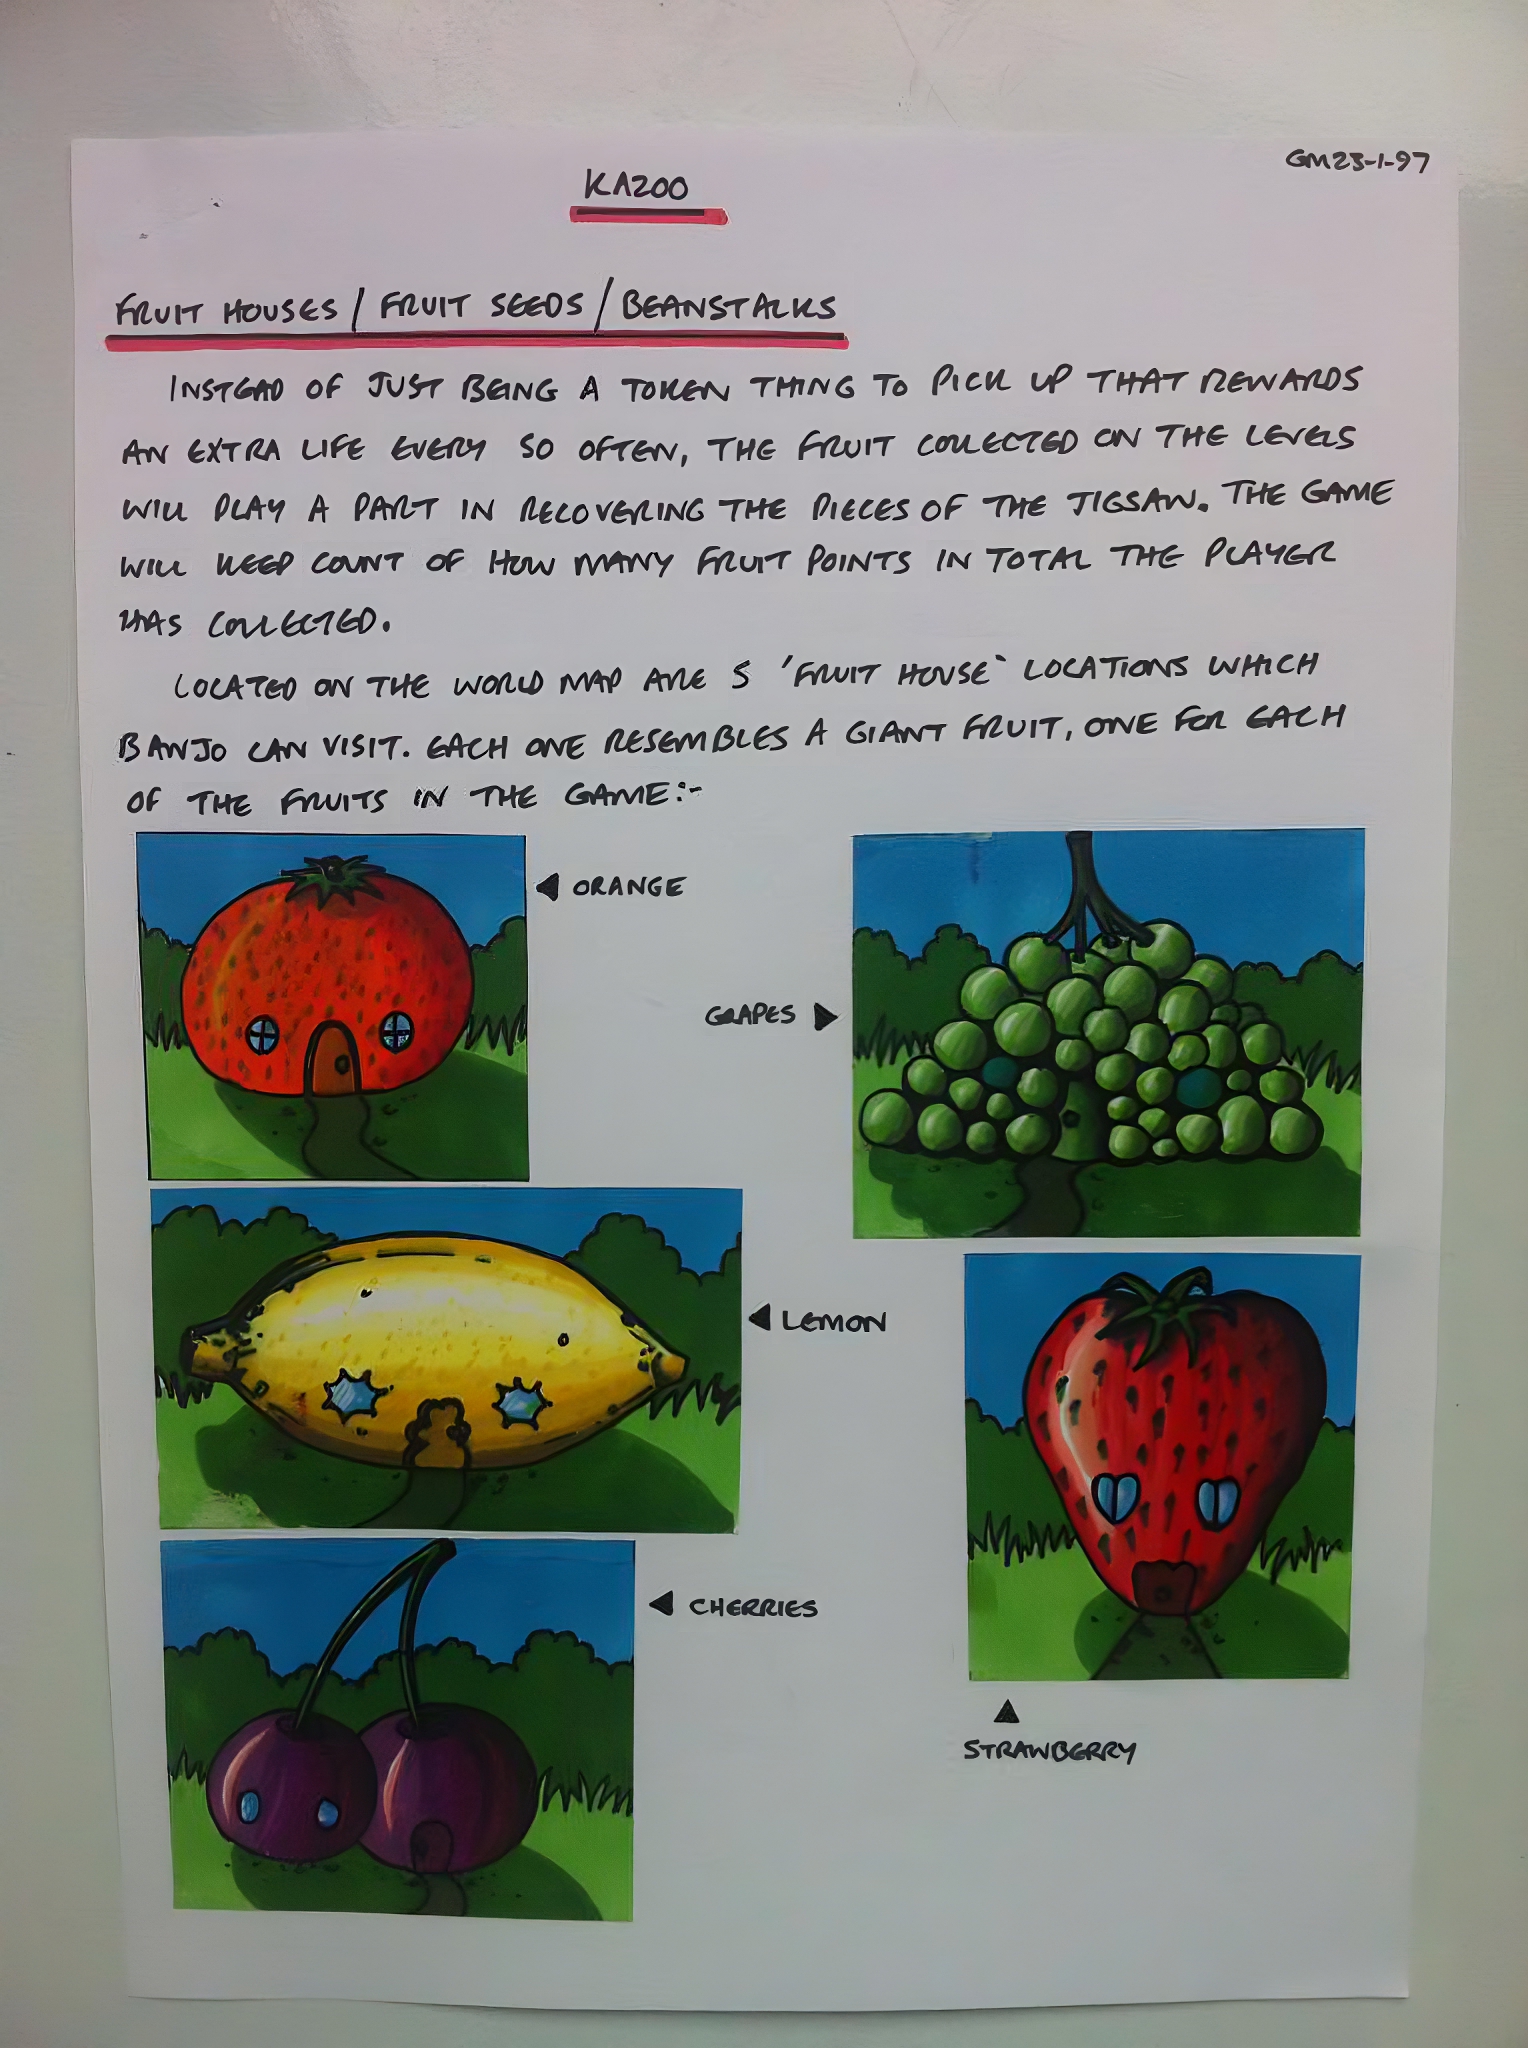 GM23-1-97
KAZOO
FRUIT HOUSES / FRUIT SEEDS / BEANSTALKS
INSTEAD OF JUST BEING A TOKEN THING TO PICK UP THAT REWARDS
AN EXTRA LIFE EVERY SO OFTEN, THE FRUIT COLLECTED ON THE LEVELS
WILL PLAY A PART IN RECOVERING THE PIECES OF THE JIGSAW. THE GAME
WILL KEEP COUNT OF HOW MANY FRUIT POINTS IN TOTAL THE PLAYER
HAS COLLECTED.
LOCATED ON THE WORLD MAP ARE 5 'FRUIT HOUSE' LOCATIONS WHICH
BANJO CAN VISIT. EACH ONE RESEMBLES A GIANT FRUIT, ONE FOR EACH
OF THE FRUITS IN THE GAME:-
ORANGE
GRAPES
LEMON
CHERRIES
STRAWBERRY